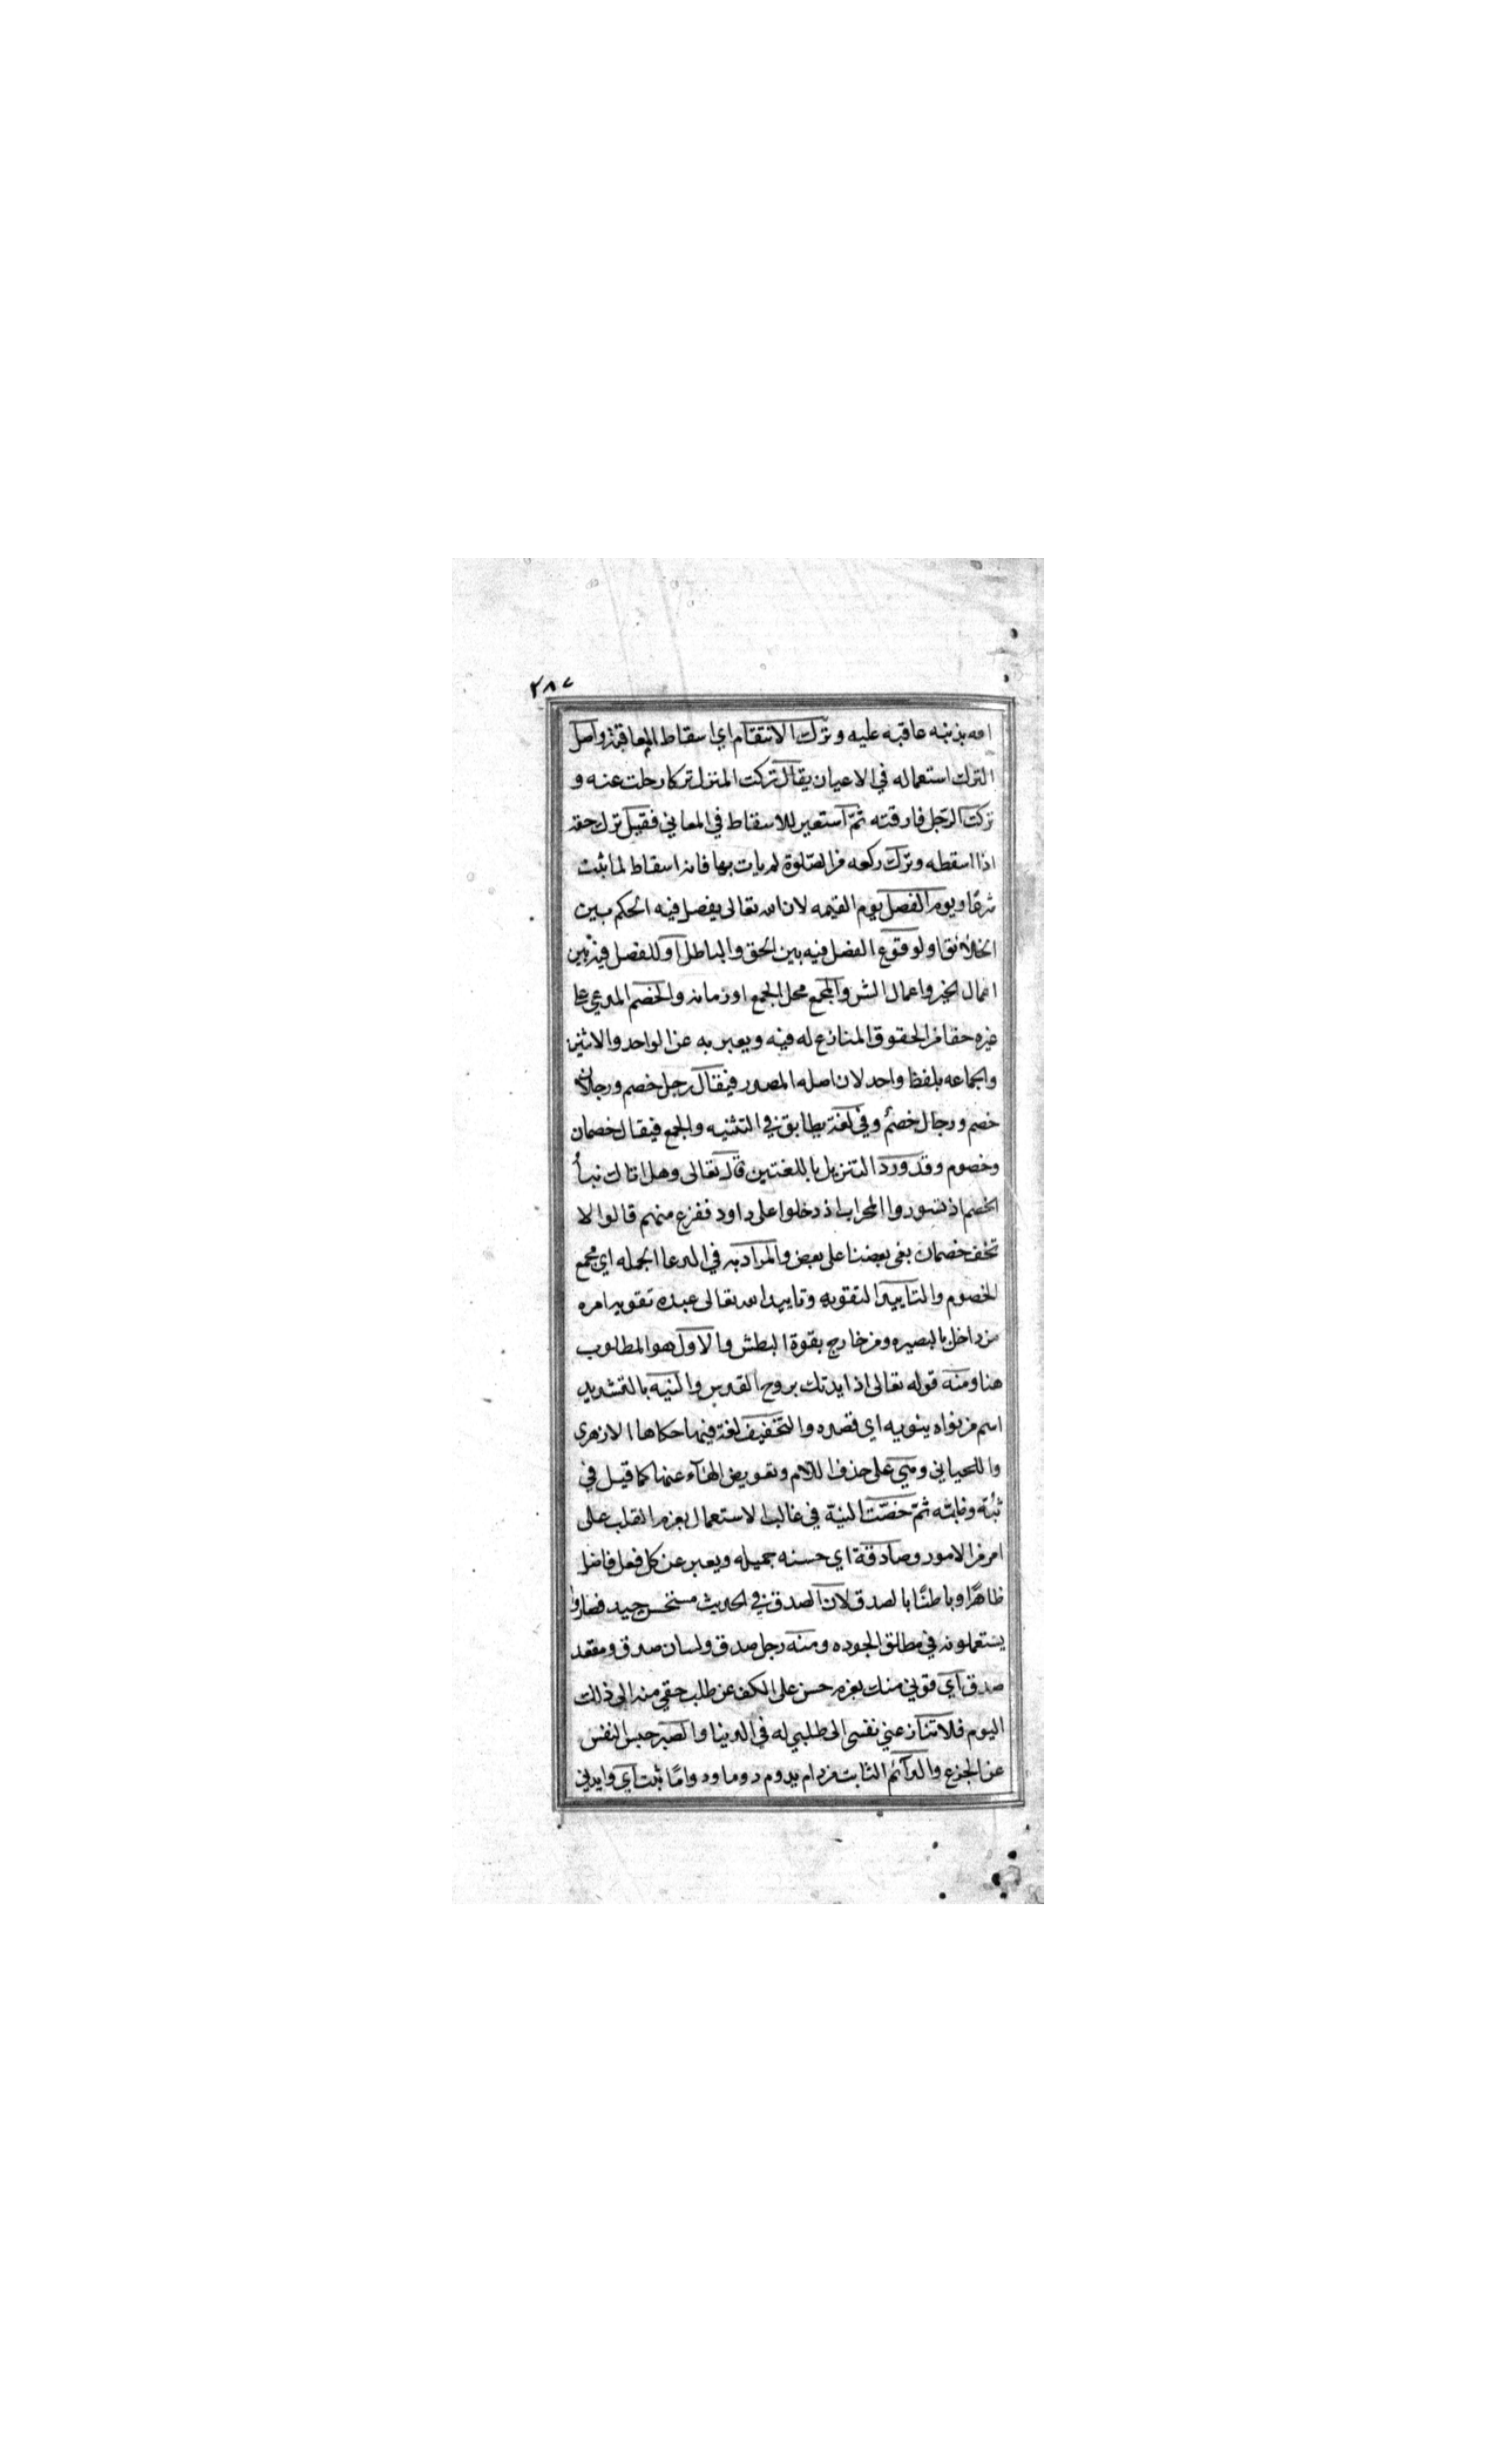 ٢٨٧
امه بذنبه عاقبه عليه وترك الانتقام اي اسقاط المعاقبة واصل
الترك استعماله في الاعيان يقال تركت المنزل تركا رحلت عنه و
تركت الرّجل فارقته ثمّ استعير للاسقاط في المعاني فقيل ترك حقه
اذا اسقطه وترك ركعه من الصّلوة لم يات بها فانه اسقاط لما ثبت
شرعًا ويوم الفصل يوم القيمه لان الله تعالى يفصل فيه الحكم بين
الخلائق او لوقوع الفصل فيه بين الحق والباطل او للفصل فيه بين
اعمال الخير واعمال الشر والمجمع محل الجمع او زمانه والخصم المدعي على
غيره حقا من الحقوق المنازع له فيه ويعبر به عن الواحد والاثنين
والجماعه بلفظ واحد لان اصله المصدر فيقال رجل خصم ورجلان
خصم ورجال خصم وفي لغة يطابق في التثنيه والجمع فيقال خصمان
وخصوم وقد ورد التنزيل باللغتين قال تعالى وهل اتاك نبأ
الخصم اذ تسوروا المحراب اذ دخلوا على داود ففزع منهم قالوا لا
تخف خصمان بغى بعضنا على بعض والمراد به في الدعا الجمله اي مجمع
الخصوم والتاييد التقويه وتاييد الله تعالى عبده تقويه امره
من داخل بالبصيره ومن خارج بقوة البطش والاول هو المطلوب
هنا ومنه قوله تعالى اذ ايدتك بروح القدس والنيه بالتشديد
اسم من نواه ينويه اي قصده والتخفيف لغة فيها حكاها الازهرى
واللحياني وهي على حذف اللام وتعويض الهاء عنها كما قيل في
ثبة وظبة ثمّ خصّت النية في غالب الاستعمال بعزم القلب على
امر من الامور وصادقة اي حسنه جميله ويعبر عن كل فعل فاضل
ظاهرًا وباطنًا بالصدق لان الصدق في الحديث مستحسن جيد فصاروا
يستعملونه في مطلق الجوده ومنه رجل صدق ولسان صدق ومقعد
صدق اي قوني منك بعزم حسن على الكف عن طلب حقي منه الى ذلك
اليوم فلا تنازعني نفسى الى طلبي له في الدنيا والصبر حبس النفس
عن الجزع والدآئم الثابت من دام يدوم دوما ودوامًا ثبت اي وايدني